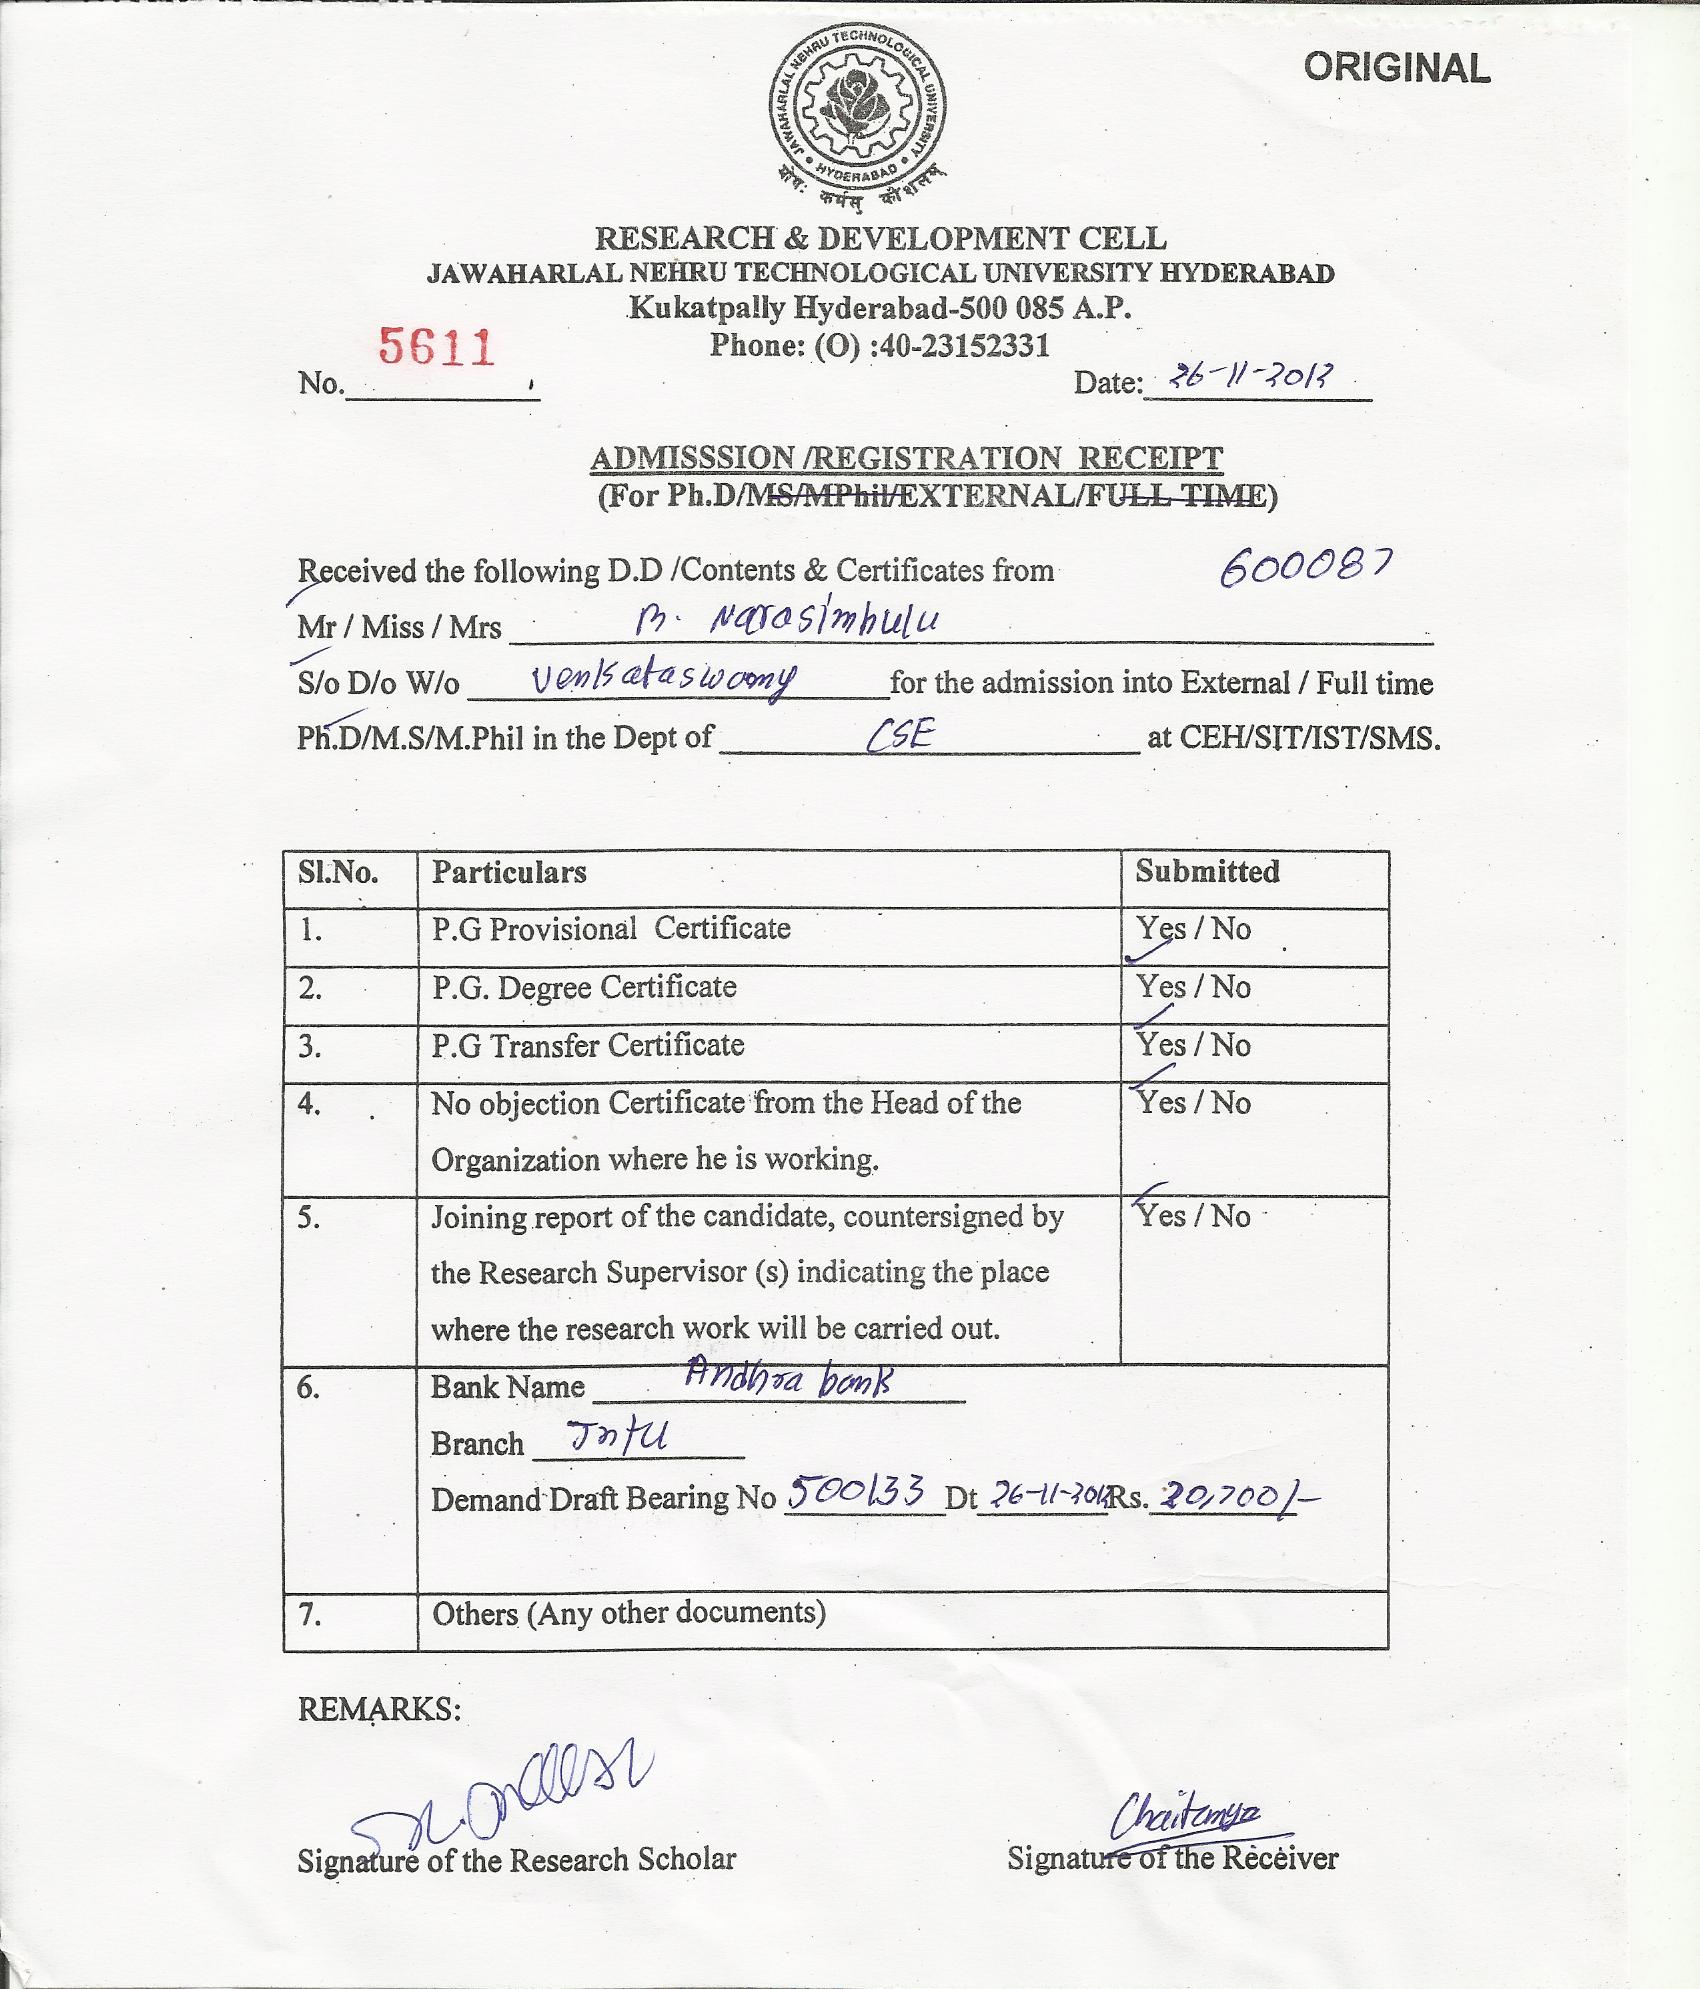 ORIGINAL
JAWAHARLAL NEHRU TECHNOLOGICAL UNIVERSITY
HYDERABAD
योगः कर्मसु कौशलम्
RESEARCH & DEVELOPMENT CELL
JAWAHARLAL NEHRU TECHNOLOGICAL UNIVERSITY HYDERABAD
Kukatpally Hyderabad-500 085 A.P.
Phone: (O) :40-23152331
No. 5611 Date: 26-11-2012
ADMISSSION /REGISTRATION RECEIPT
(For Ph.D/MS/MPhil/EXTERNAL/FULL TIME)
Received the following D.D /Contents & Certificates from 600087
Mr / Miss / Mrs Narasimhulu
S/o D/o W/o Venkataswamy for the admission into External / Full time
Ph.D/M.S/M.Phil in the Dept of CSE at CEH/SIT/IST/SMS.
Sl.No. Particulars Submitted
1. P.G Provisional Certificate Yes / No
2. P.G. Degree Certificate Yes / No
3. P.G Transfer Certificate Yes / No
4. No objection Certificate from the Head of the Yes / No
Organization where he is working.
5. Joining report of the candidate, countersigned by Yes / No
the Research Supervisor (s) indicating the place
where the research work will be carried out.
6. Bank Name Andhra bank
Branch Jntu
Demand Draft Bearing No 500133 Dt 26-11-2012 Rs. 20,700/-
7. Others (Any other documents)
REMARKS:
Chaitanya
Signature of the Research Scholar Signature of the Receiver